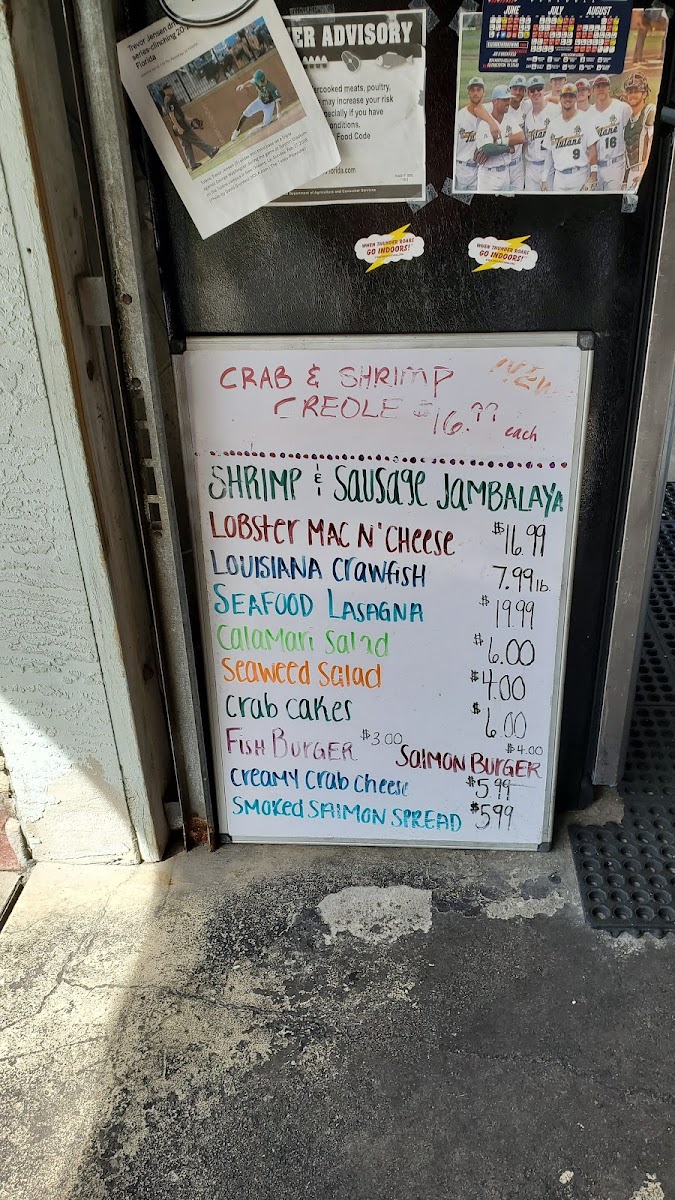 Trevor Jensen
series-clinching
Florida
ER ADVISORY
ercooked meats, poultry,
may increase your risk
pecially if you have
onditions.
Food Code
Department of Agriculture and Consumer Services
JUNE JULY AUGUST
Tulane
9
16
WHEN THUNDER ROARS
GO INDOORS!
WHEN THUNDER ROARS
GO INDOORS!
CRAB & SHRIMP NEW
CREOLE $16.99 each
SHRIMP & SAUSAGE JAMBALAYA
LOBSTER MAC N' CHEESE $16.99
LOUISIANA CRAWFISH 7.99 lb.
SEAFOOD LASAGNA $19.99
CALAMARI SALAD $6.00
SEAWEED SALAD $4.00
CRAB CAKES $6.00
FISH BURGER $3.00 SALMON BURGER $4.00
CREAMY CRAB CHEESE $5.99
SMOKED SALMON SPREAD $5.99